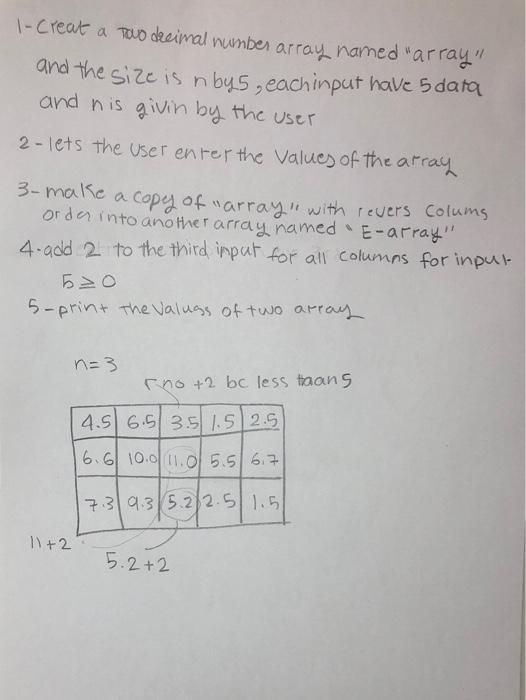 1-Creat a Two decimal number array named "array"
and the size is n by 5, each input have 5 data
and n is givin by the user
2-lets the user enter the values of the array
3-make a copy of "array" with revers colums
order into another array named "E-array"
4.add 2 to the third input for all columns for input
5≥0
5-print the values of two array
n=3
no +2 bc less taan 5
4.5 6.5 3.5 1.5 2.5
6.6 10.0 11.0 5.5 6.7
7.3 9.3 5.2 2.5 1.5
11+2
5.2+2